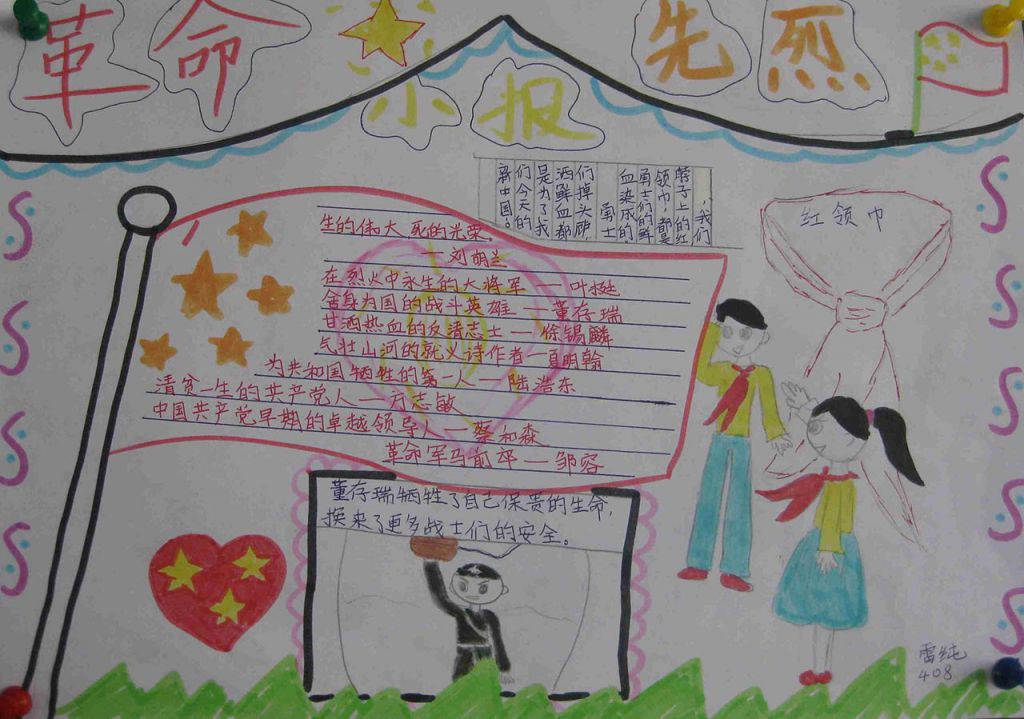 革命先烈
小报
，我们
脖子上的红
领巾，都是
勇士们的鲜
血染成的
勇士
们掉头颅
洒鲜血都
是为了我
们今天的
新中国。
红领巾
生的伟大 死的光荣。
—刘胡兰
在烈火中永生的大将军——叶挺
舍身为国的战斗英雄——董存瑞
甘洒热血的反清志士—徐锡麟
气壮山河的就义诗作者—夏明翰
为共和国牺牲的第一人——陆浩东
清贫一生的共产党人——方志敏
中国共产党早期的卓越领导人—蔡和森
革命军马前卒—邹容
董存瑞牺牲了自己保贵的生命，
换来了更多战士们的安全。
雷纯
408